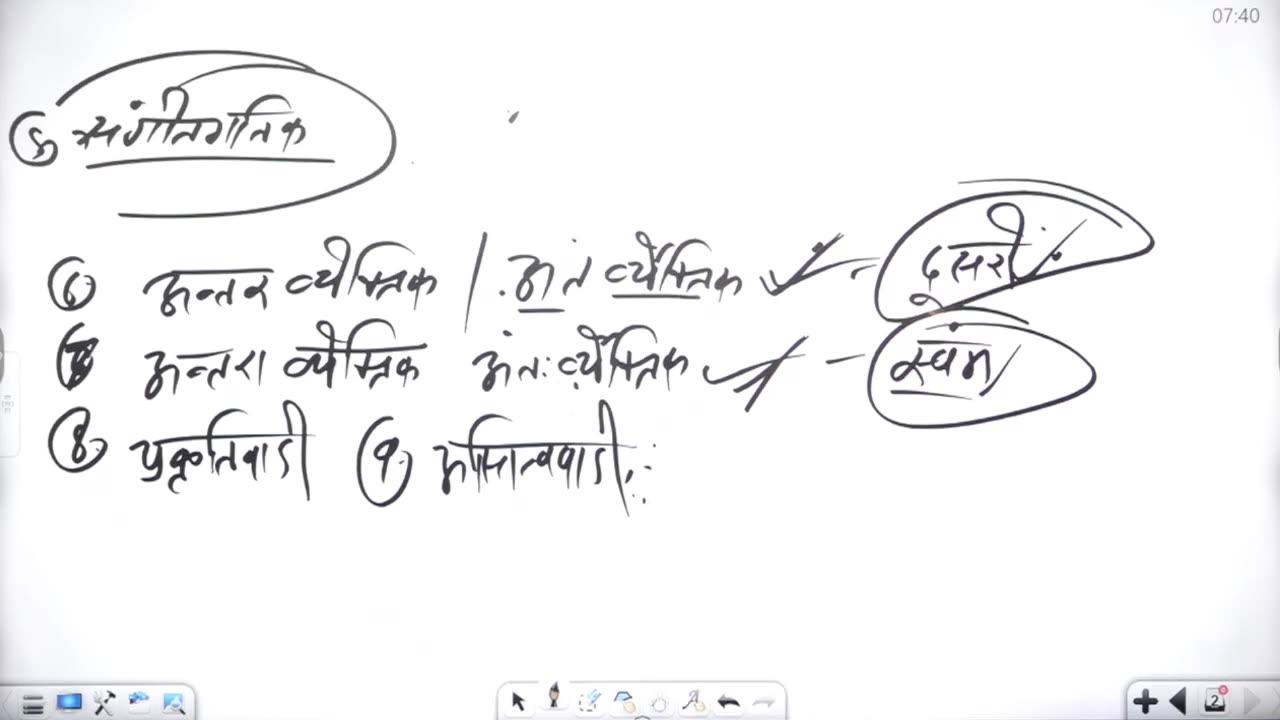 07:40
संगीतगतिक
अन्तर व्यैक्तिक / अंत र्व्यैक्तिक - दुसरों
अन्तरा व्यैक्तिक अंत: र्व्यैक्तिक - स्वंम
⑧ प्रकृतिवादी ⑨ अस्तित्ववादी
2